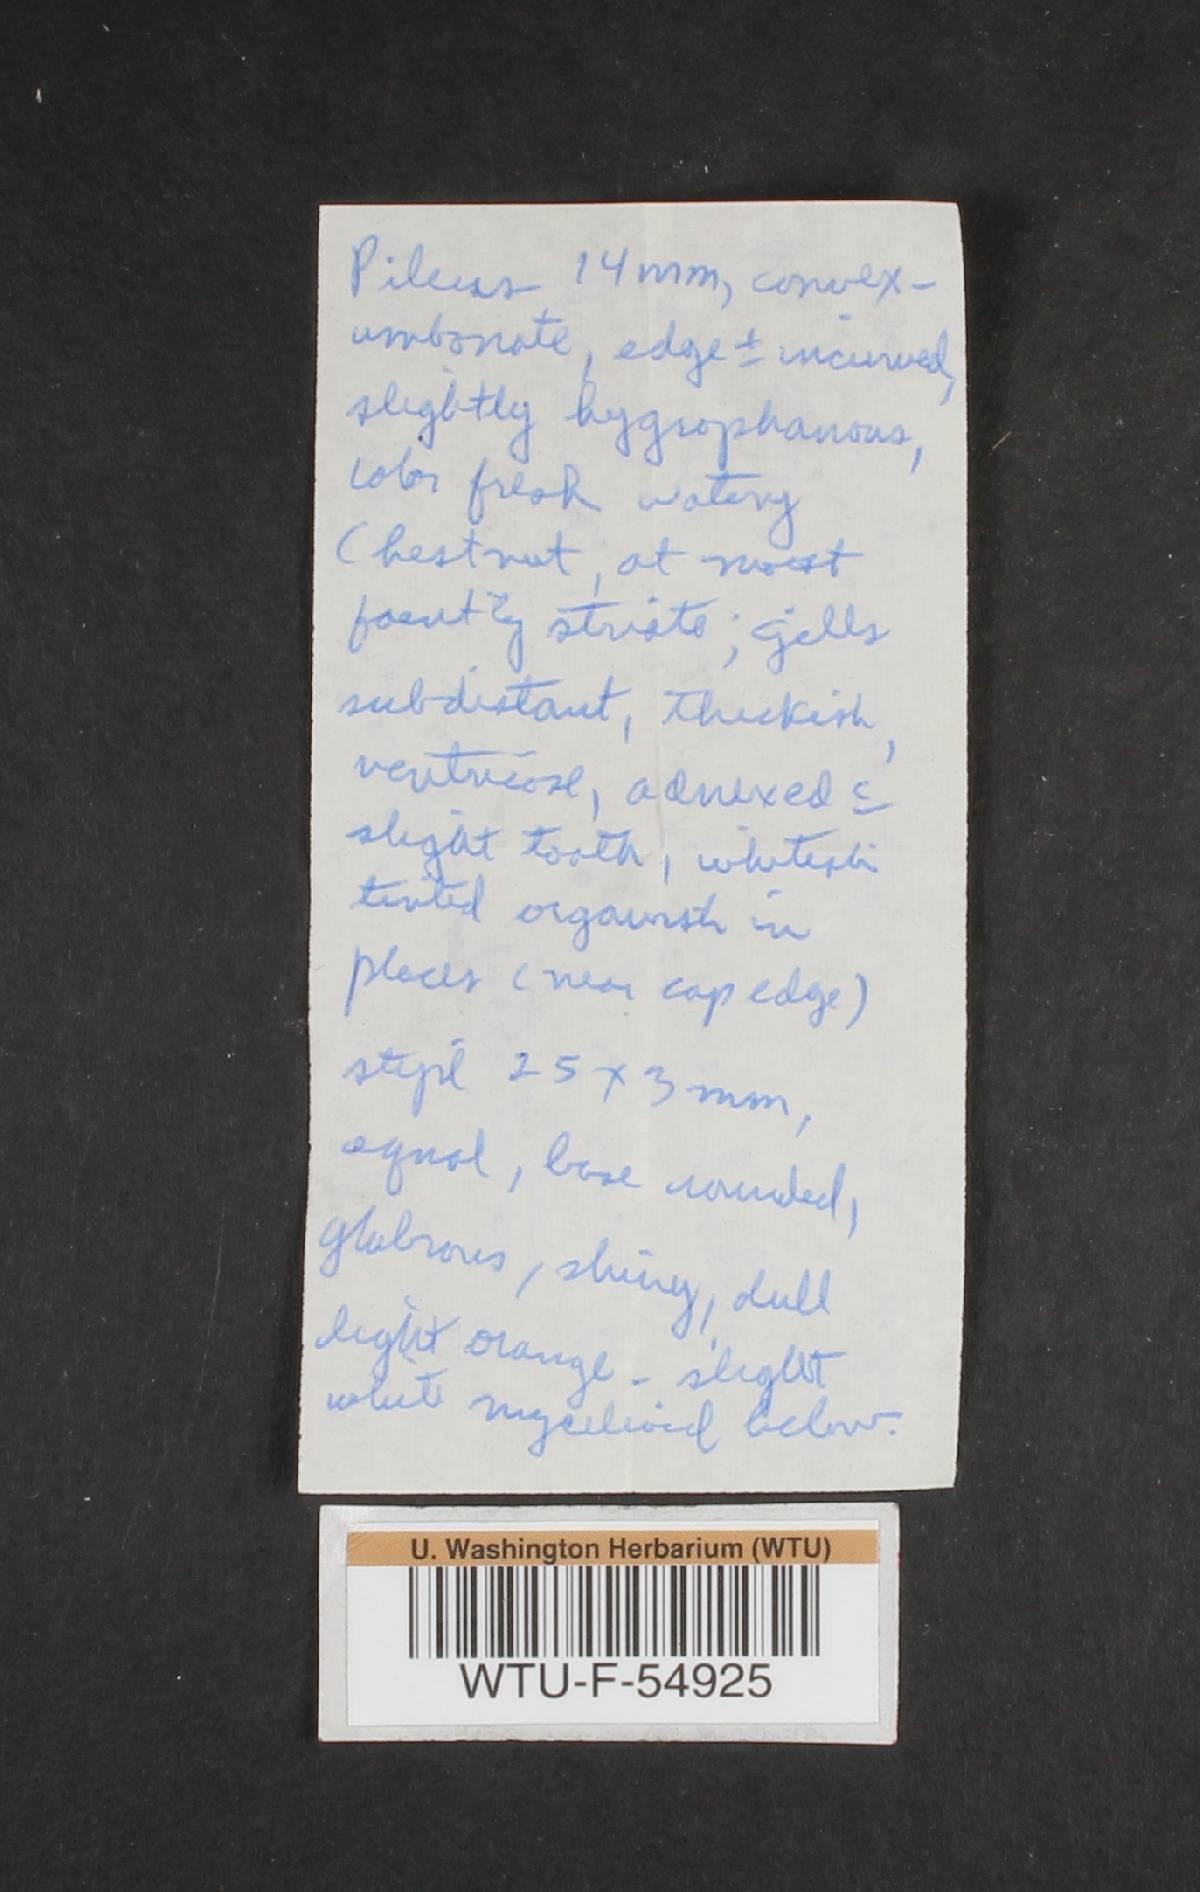 Pileus 14 mm, convex-
umbonate, edge ± incurved,
slightly hygrophanous,
color fresh watery
Chestnut, at most
faintly striate; gills
subdistant, thickish,
ventricose, adnexed c̄
slight tooth, whitish
tinted organish in
places (near cap edge)
stipe 25 x 3 mm,
equal, base rounded,
glabrous, shiny, dull
light orange - slight
white mycelioid below.
U. Washington Herbarium (WTU)
WTU-F-54925